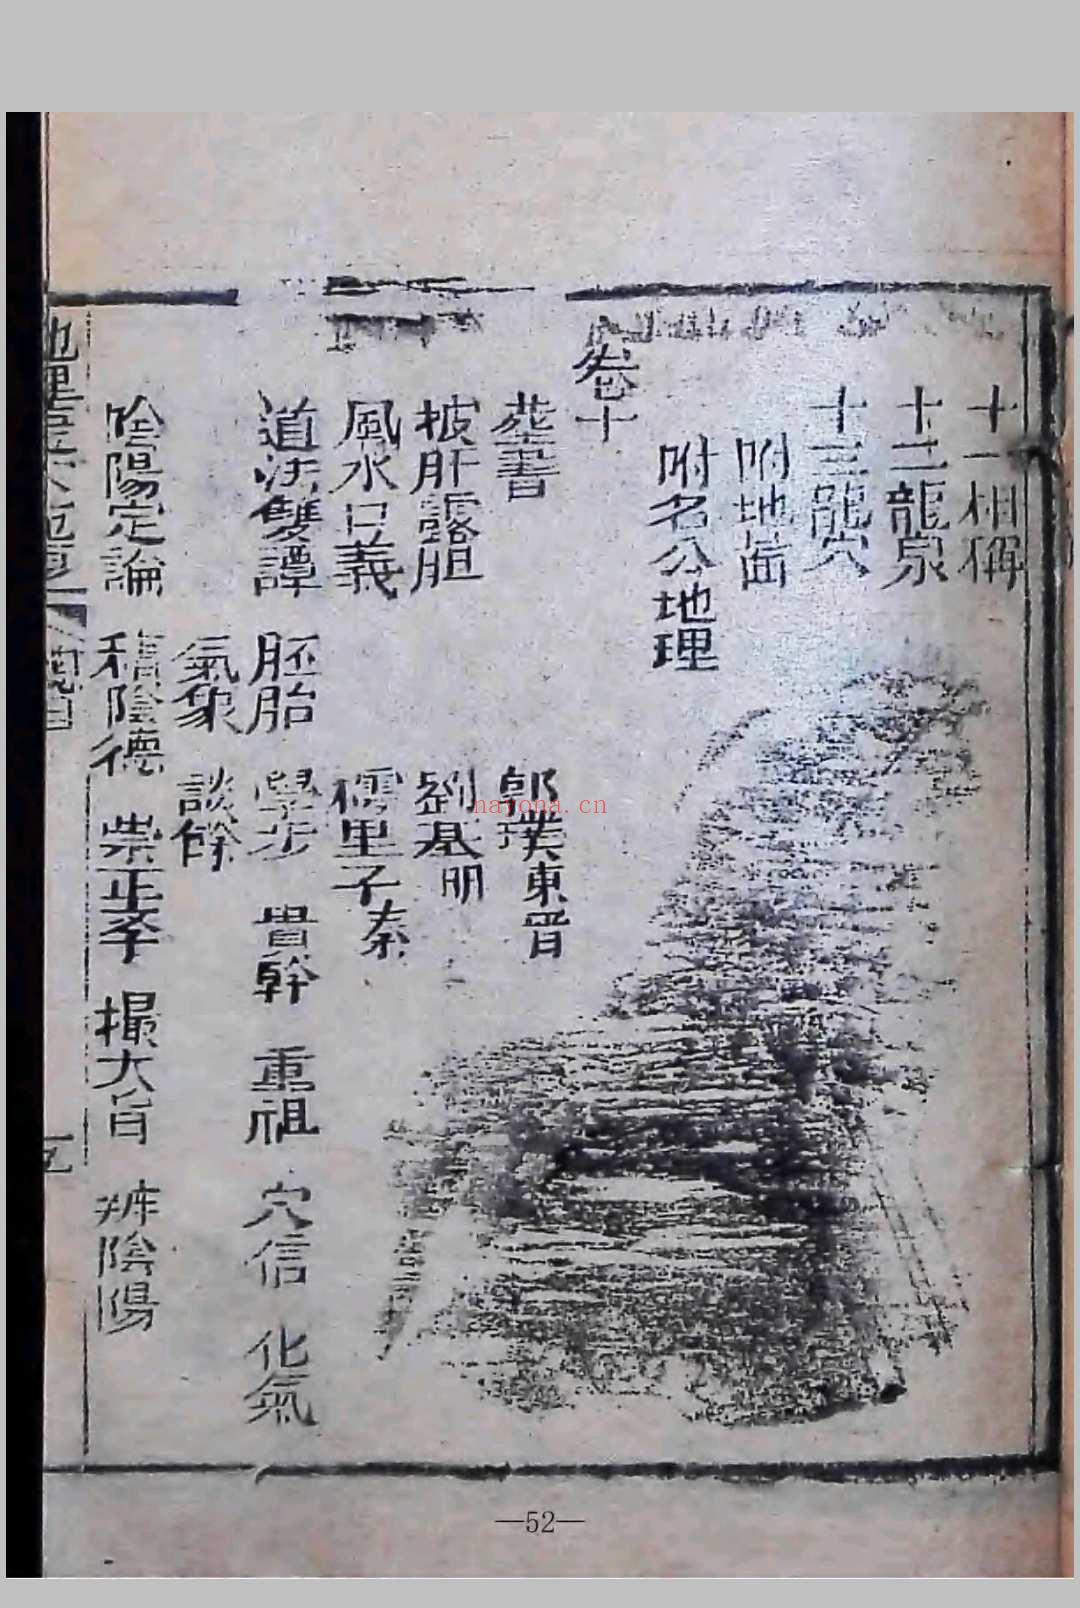 十一相稱
十二龍泉
十三龍穴
附地圖
附名公地理
卷十
葬書 郭璞東晉
披肝露胆 劉基明
風水口義 樗里子秦
道法雙譚 胚胎 學步 貴幹 重祖 穴信 化氣
氣象 談餘
陰陽定論 積陰德 崇正孝 撮大旨 辨陰陽
nayona.cn
—52—